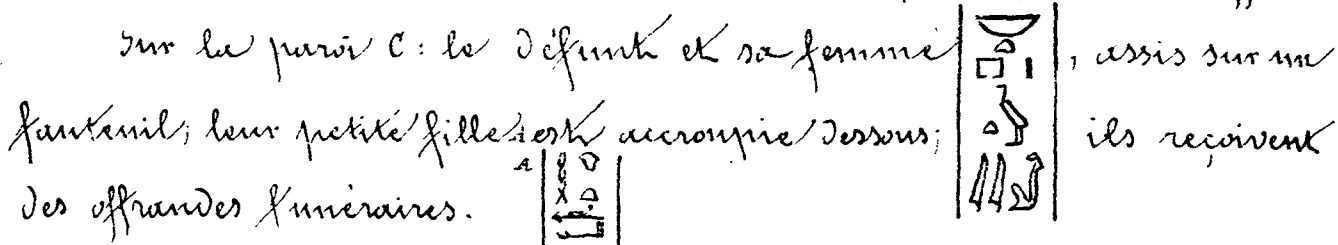 Sur la paroi C: le défunt et sa femme , assis sur un
fauteuil; leur petite fille est accroupie dessous; ils reçoivent
des offrandes funéraires.